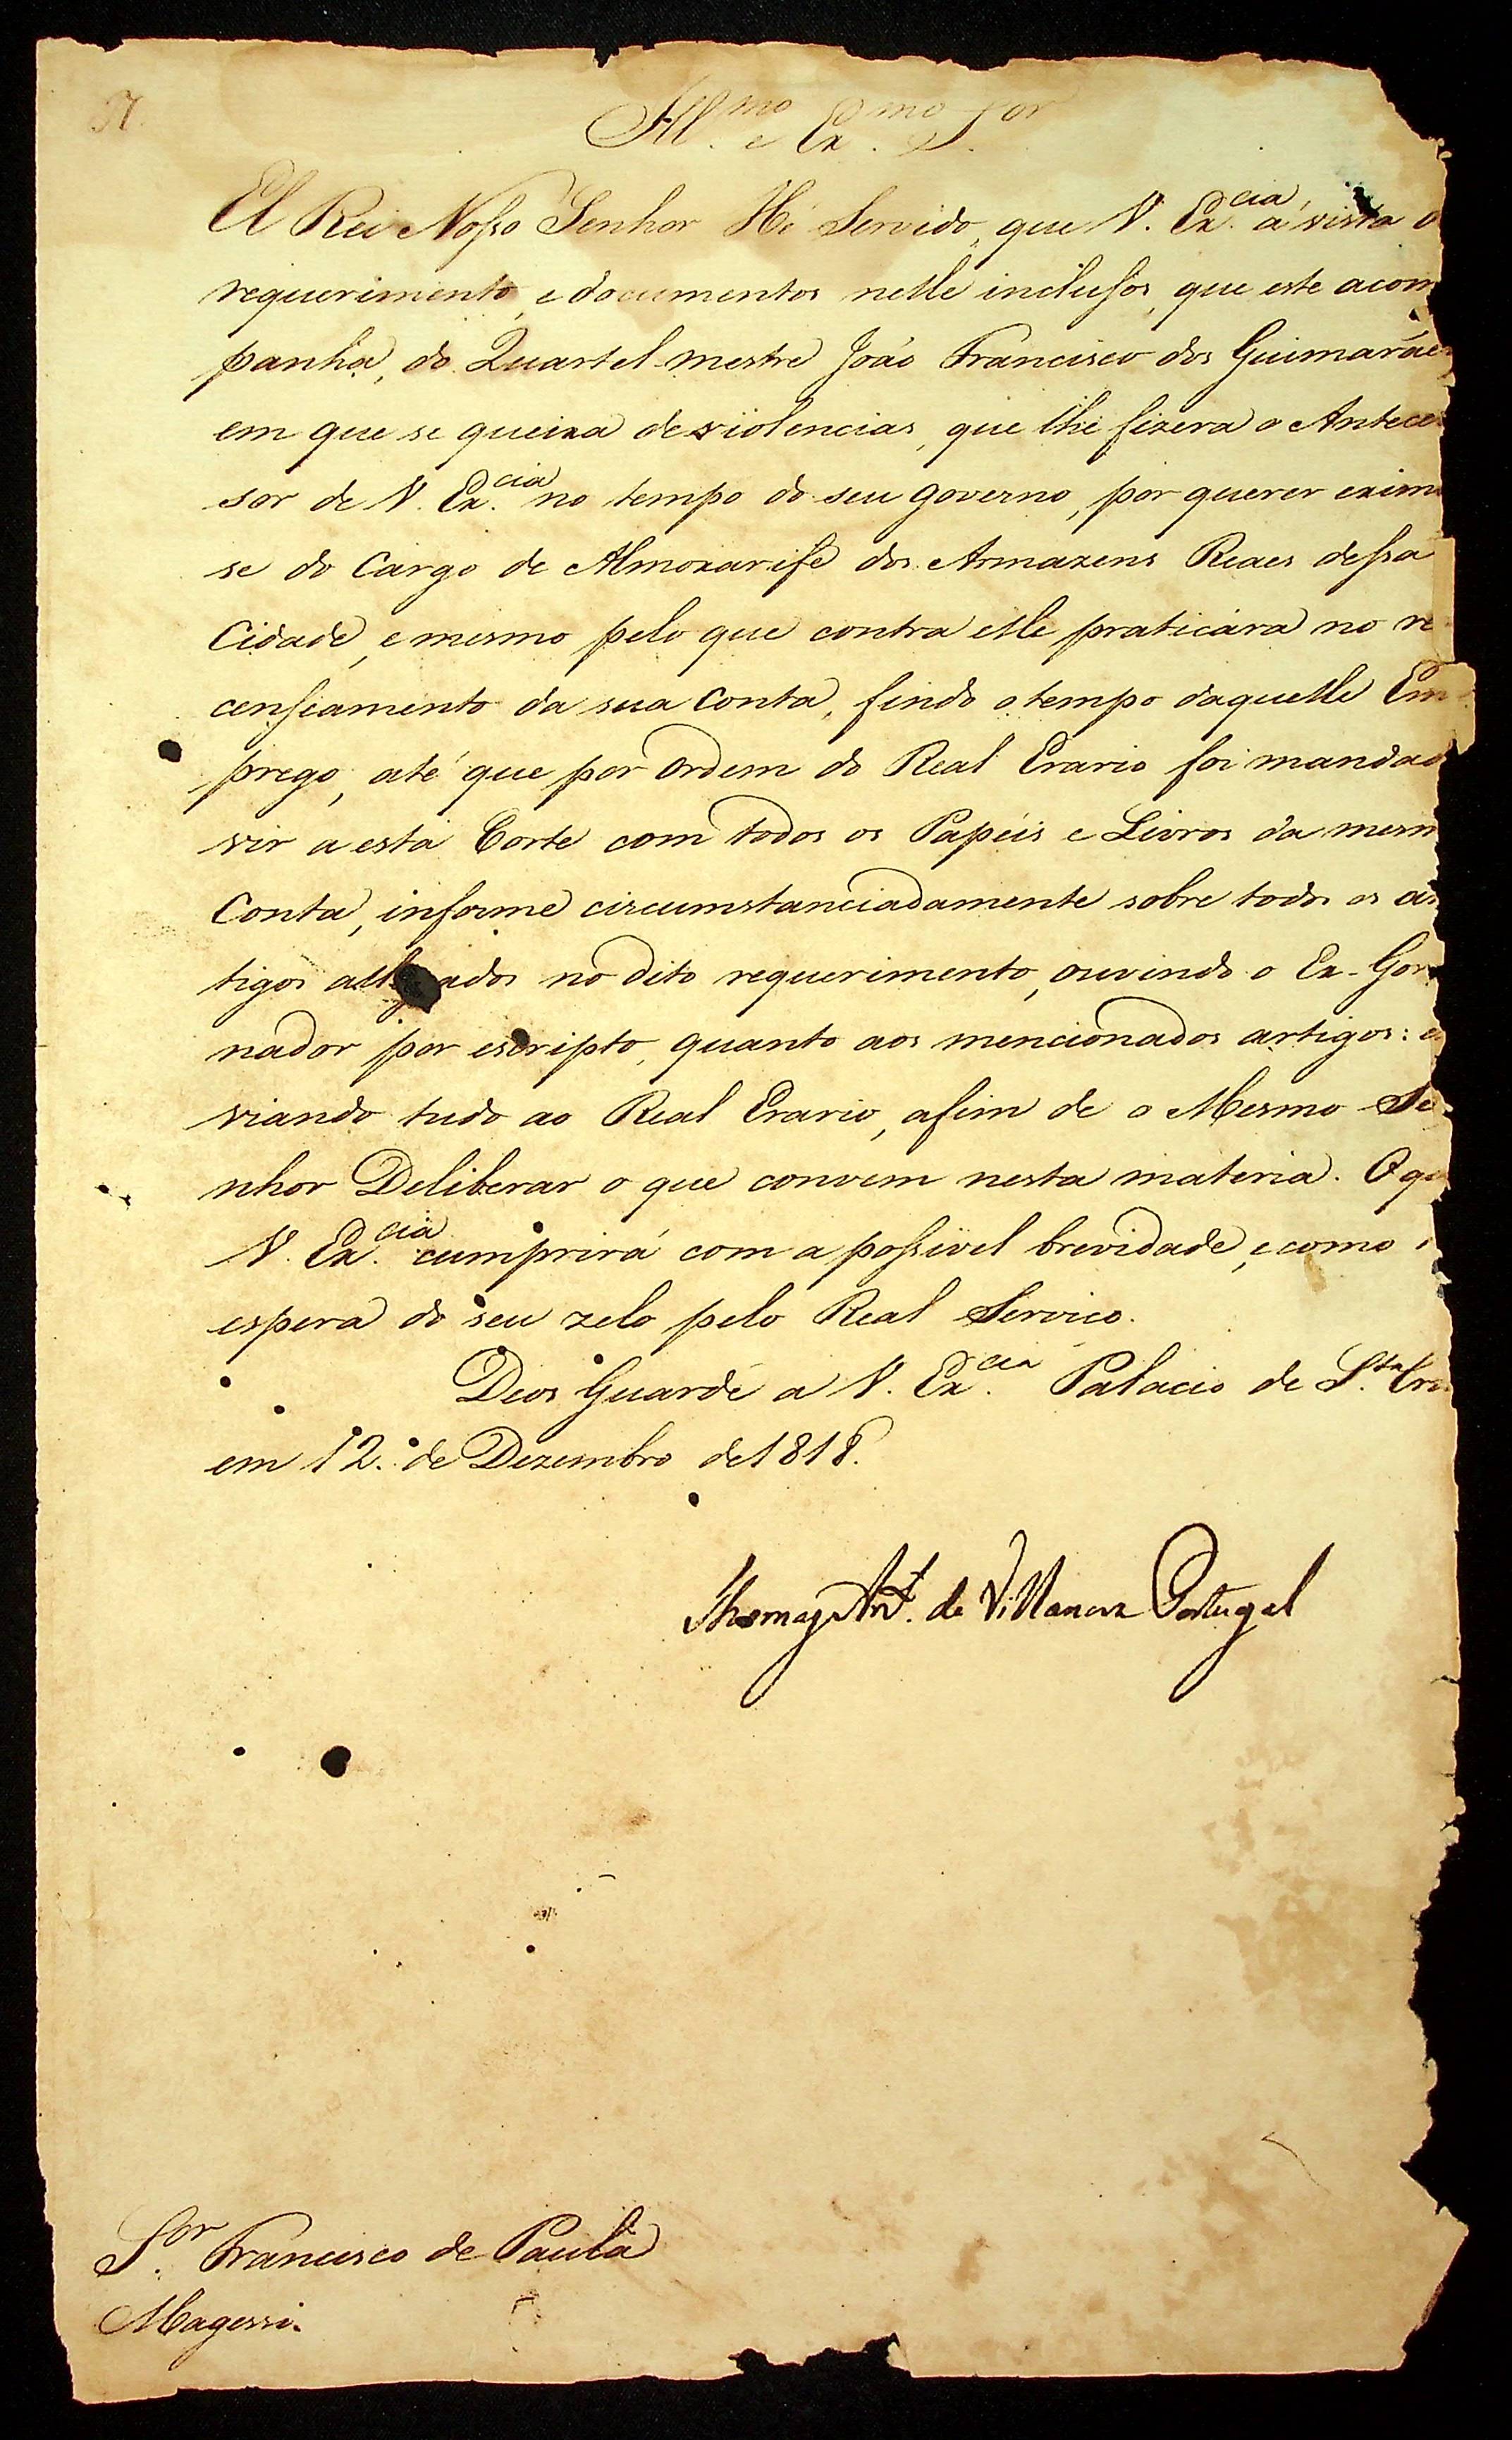 Ill.mo e Ex.mo S.or
El Rei Nosso Senhor Hé Servido, que V. Ex.cia á vista
requerimento, e documentos nelle inclusos, que este acom
panha, do Quartel-mestre João Francisco dos Guimarãe
em que se queixa de violencias, que lhe fizera o Antece
sor de V. Ex.cia no tempo do seu governo, por querer exim
se do Cargo de Almoxarife dos Armazens Reaes dessa
Cidade, e mesmo pelo que contra elle praticára no re
censeamento da sua Conta, findo o tempo daquelle Em
prego, até que por Ordem do Real Erario foi mandad
vir a esta Corte com todos os Papéis e Livros da mesm
Conta, informe circumstanciadamente sobre todos os ar
tigos all ados no dito requerimento, ouvindo o Ex-Gov
nador por escripto, quanto aos mencionados artigos: e
viando tudo ao Real Erario, afim de o Mesmo Se
nhor Deliberar o que convem nesta materia. O que
V. Ex.cia cumprirá com a possivel brevidade, e como
espera do seu zelo pelo Real Servico.
Deos Guarde a V. Ex.cia Palacio de S.ta Cru
em 12. de Dezembro de 1818.
Thomaz Ant. de Villanova Portugal
S.or Francisco de Paula
Magessi.